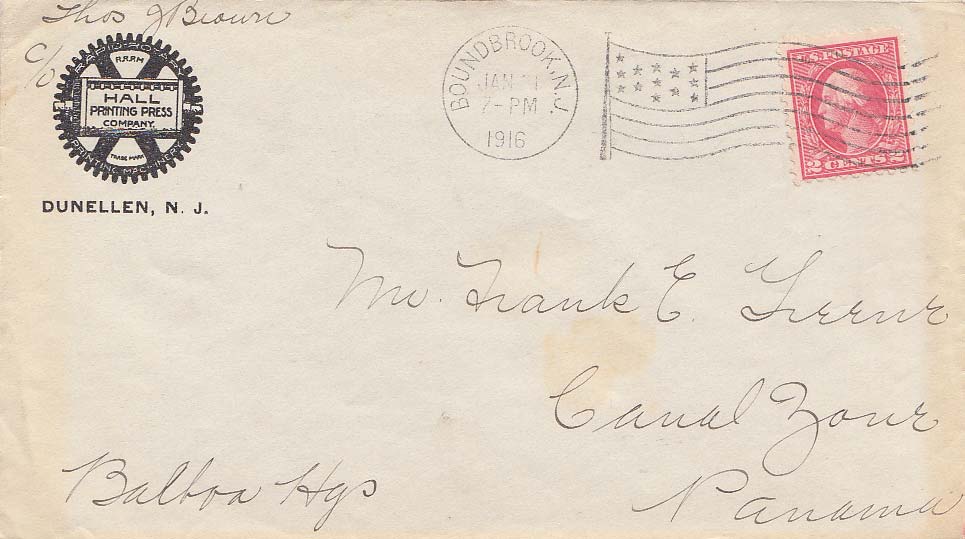 Thos J Brown
C/O
RAPID ROTARY
R.R.P.M
HALL
PRINTING PRESS
COMPANY.
TRADE MARK
PRINTING MACHINERY
DUNELLEN, N. J.
BOUNDBROOK, N.J.
JAN
7-PM
1916
U.S. POSTAGE
2 CENTS 2
Mr. Frank E.
Canal Zone
Balboa Hgs
Panama